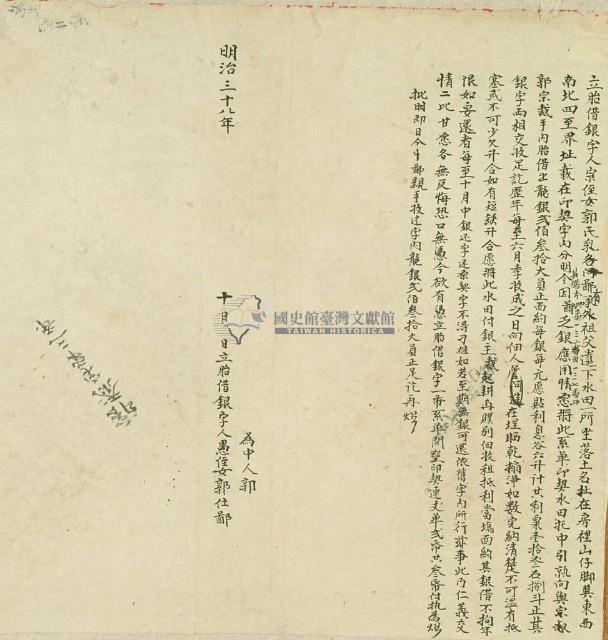 立胎借銀字人宗侄女郭氏乳名 鄙外祖父遺下水田一所坐落土名址在房裡山仔脚其東西
南北四至界址載在印契字內分明今因鄙乏銀應用情愿將此系单印契水田托中引就向與宗叔
郭宗裁手內胎借出龍銀弍佰叁拾大員正面約每銀每元愿貼利息谷六升計共利粟壹拾叁石捌斗正其
銀字兩相交收足訖歷年每至六月季收成之日向佃人 在埕晒乾搧淨如數完納清楚不可濕冇抵
塞或不可少欠升合如有短缺升合愿將此水田付銀主 起耕再贌別佃收租抵利當塲面約其銀借不拘年
限如要還者每至十月中銀還字还 與字不得刁难如若至期無銀可還依舊字內所行茲事此乃仁義交
情二比甘愿各無反悔恐口無憑今欲有憑立胎借銀字一帋系单開墾印契連丈单弍帋共叁帋付执為炤
批明即日仝中鄙親手收过字內龍銀弍佰叁拾大員正足訖再炤
為中人郭
十月 日立胎借銀字人愚侄女郭仕鄙
明治三十八年
國史館臺灣文獻館
TAIWAN HISTORICA